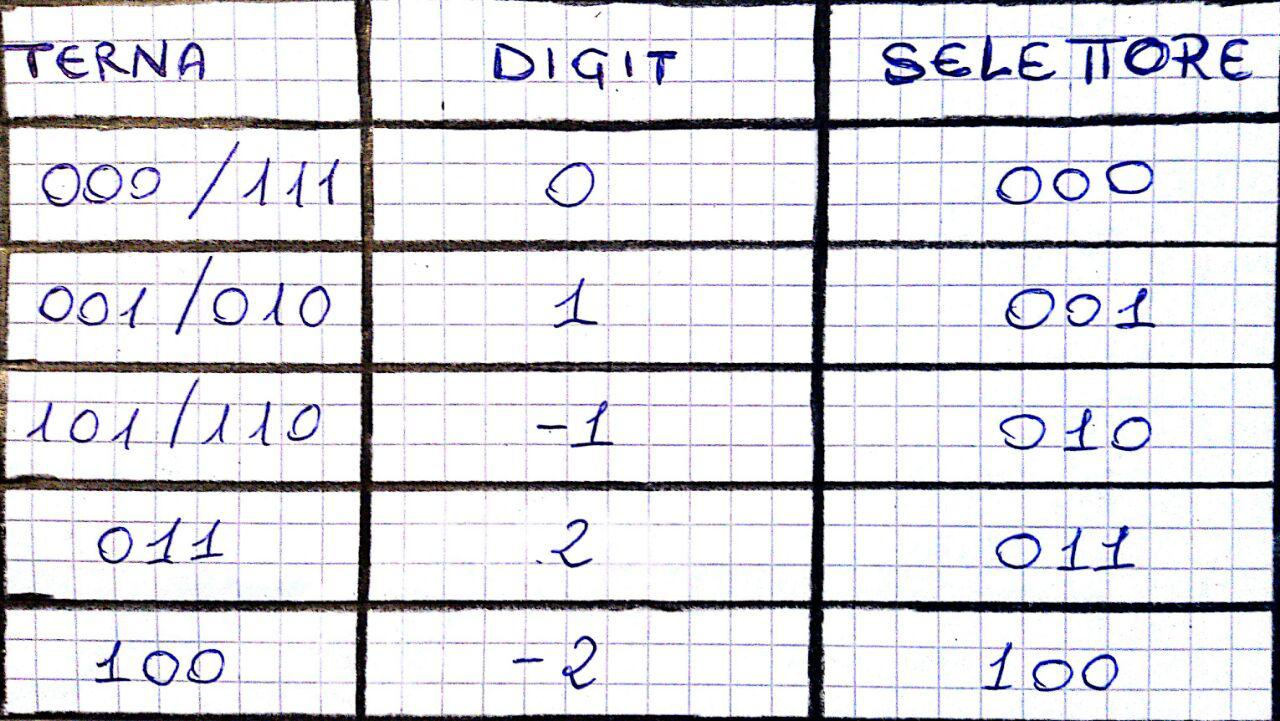 TERNA DIGIT SELETTORE
000/111 0 000
001/010 1 001
101/110 -1 010
011 2 011
100 -2 100